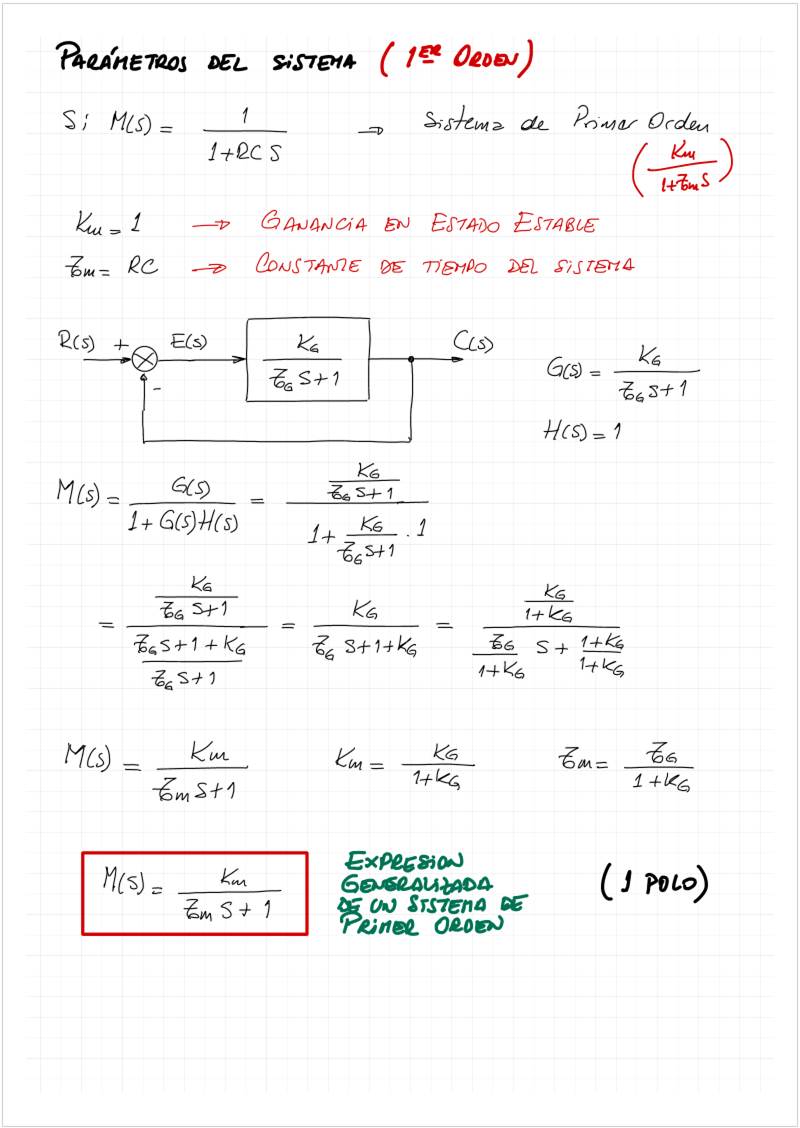 PARÁMETROS DEL SISTEMA (1ER ORDEN)
Si M(s) = 1 / (1+RCS) → Sistema de Primer Orden
(Km / (1+τm S))
Km = 1 → GANANCIA EN ESTADO ESTABLE
τm = RC → CONSTANTE DE TIEMPO DEL SISTEMA
R(s) + E(s) KG / (τG S+1) C(s)
−
G(s) = KG / (τG S+1)
H(s) = 1
M(s) = G(s) / (1+G(s)H(s)) = (KG / (τG S+1)) / (1 + KG / (τG S+1) · 1)
= (KG / (τG S+1)) / ((τG S+1+KG) / (τG S+1)) = KG / (τG S+1+KG) = (KG / (1+KG)) / (τG / (1+KG) S + (1+KG) / (1+KG))
M(s) = Km / (τm S+1) Km = KG / (1+KG) τm = τG / (1+KG)
M(s) = Km / (τm S+1)
EXPRESION
GENERALIZADA
DE UN SISTEMA DE
PRIMER ORDEN
(1 POLO)